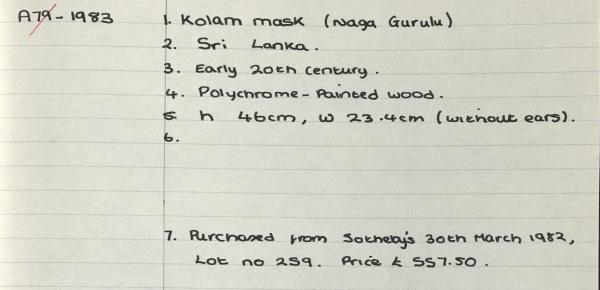 A79-1983
1. Kolam mask (Naga Gurulu)
2. Sri Lanka.
3. Early 20th century.
4. Polychrome-Painted wood.
5 h 46cm, w 23.4cm (without ears).
6.
7. Purchased from Sotheby's 30th March 1982,
Lot no 259. Price £ 557.50.